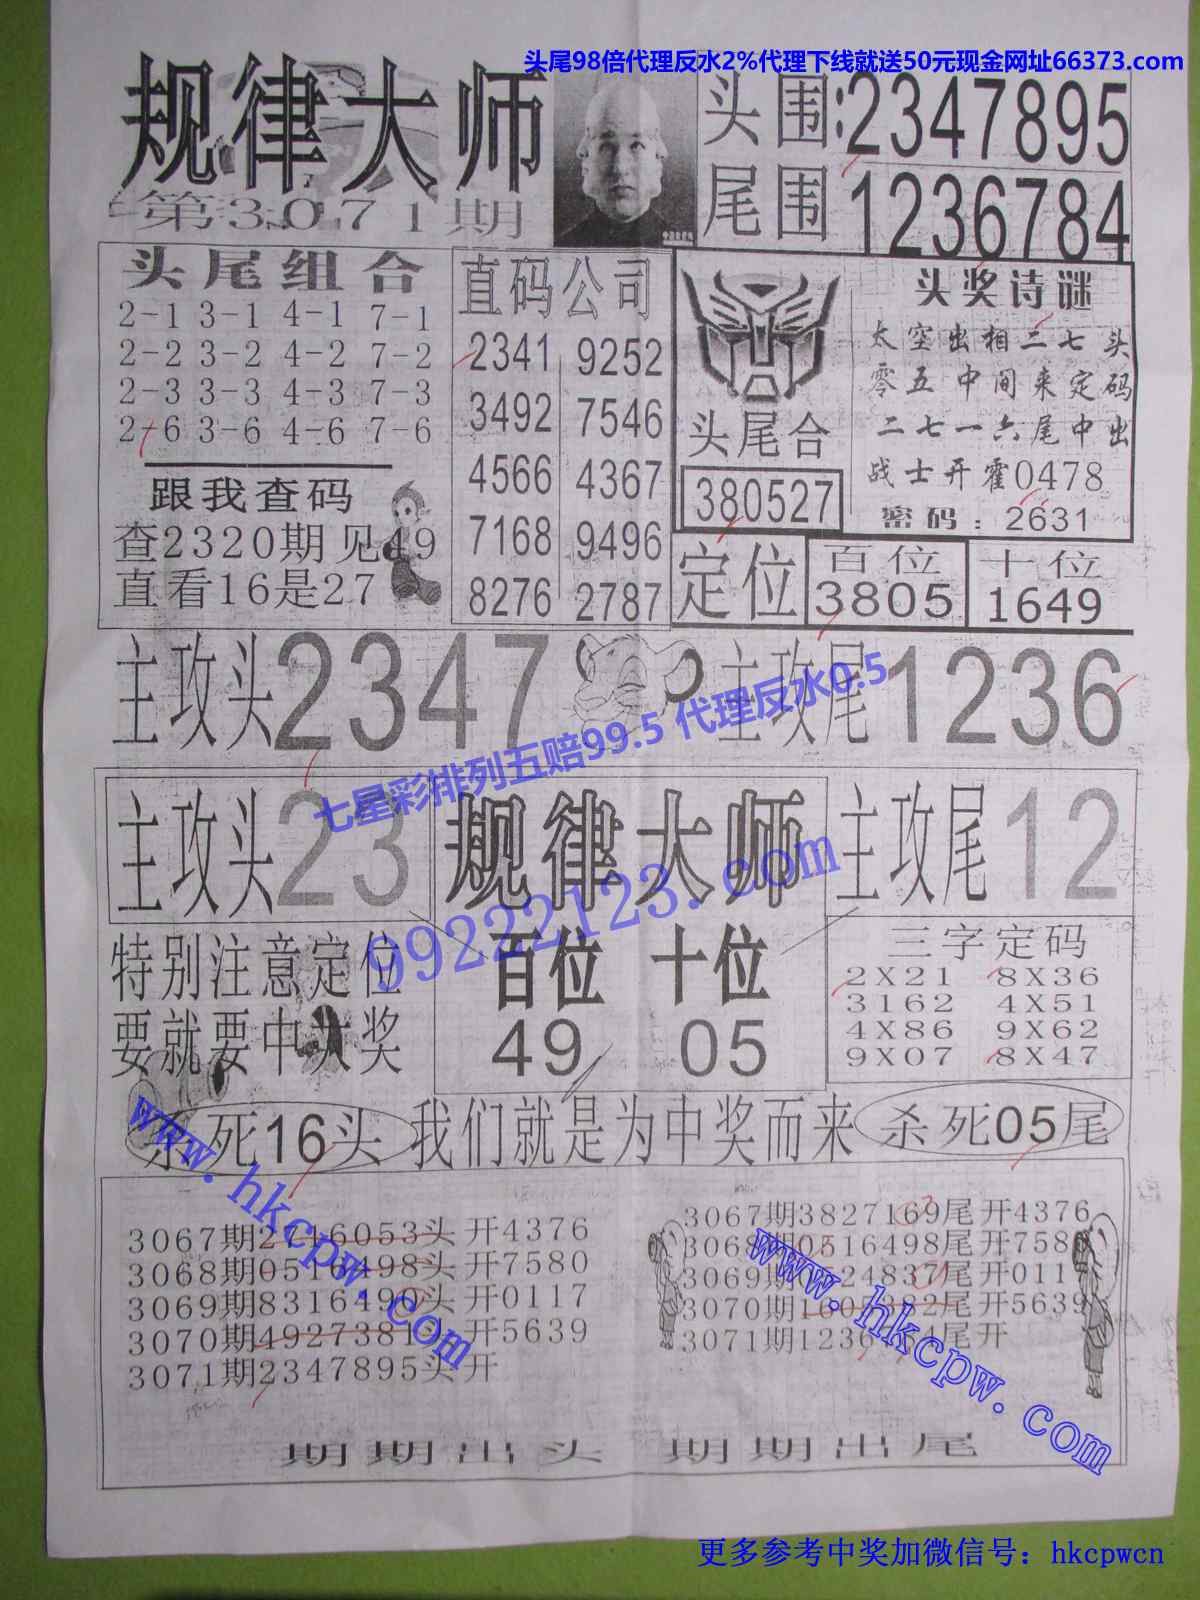 头尾98倍代理反水2%代理下线就送50元现金网址66373.com
规律大师
第3071期
头围:2347895
尾围1236784
头尾组合
2-1 3-1 4-1 7-1
2-2 3-2 4-2 7-2
2-3 3-3 4-3 7-3
2-6 3-6 4-6 7-6
跟我查码
查2320期见49
直看16是27
直码公司
2341 9252
3492 7546
4566 4367
7168 9496
8276 2787
头尾合
380527
头奖诗谜
太空出相二七头
零五中间来定码
二七一六尾中出
战士开霍0478
密码:2631
定位
百位
3805
十位
1649
主攻头2347
主攻尾1236
七星彩排列五赔99.5 代理反水0.5
主攻头23
规律大师
主攻尾12
99222123.com
特别注意定位
要就要中大奖
百位 十位
49 05
三字定码
2X21 8X36
3162 4X51
4X86 9X62
9X07 8X47
杀死16头
我们就是为中奖而来
杀死05尾
www.hkcpw.com
3067期2716053头开4376
3068期0516498头开7580
3069期8316490头开0117
3070期4927381头开5639
3071期2347895头开
3067期3827169尾开4376
3068期0516498尾开758
3069期0524837尾开011
3070期1605382尾开5639
3071期1236784尾开
www.hkcpw.com
期期出头 期期出尾
更多参考中奖加微信号：hkcpwcn